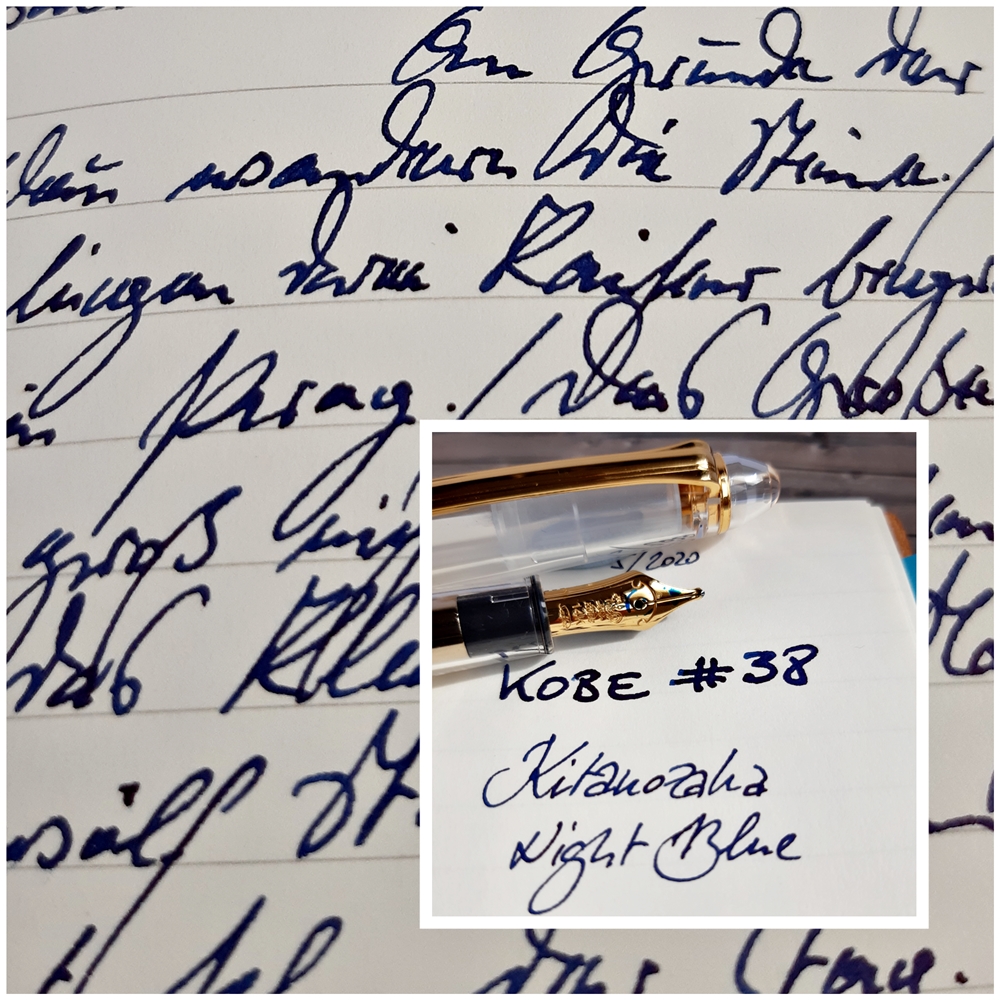 Am Grunde der
dau wandern die Steine./
liegen drei Kaiser begra
in Prag. / Das Große
groß nich
das Kle
zwölf St
der Tag.
5/2020
KOBE #38
Kitanozaka
Night Blue